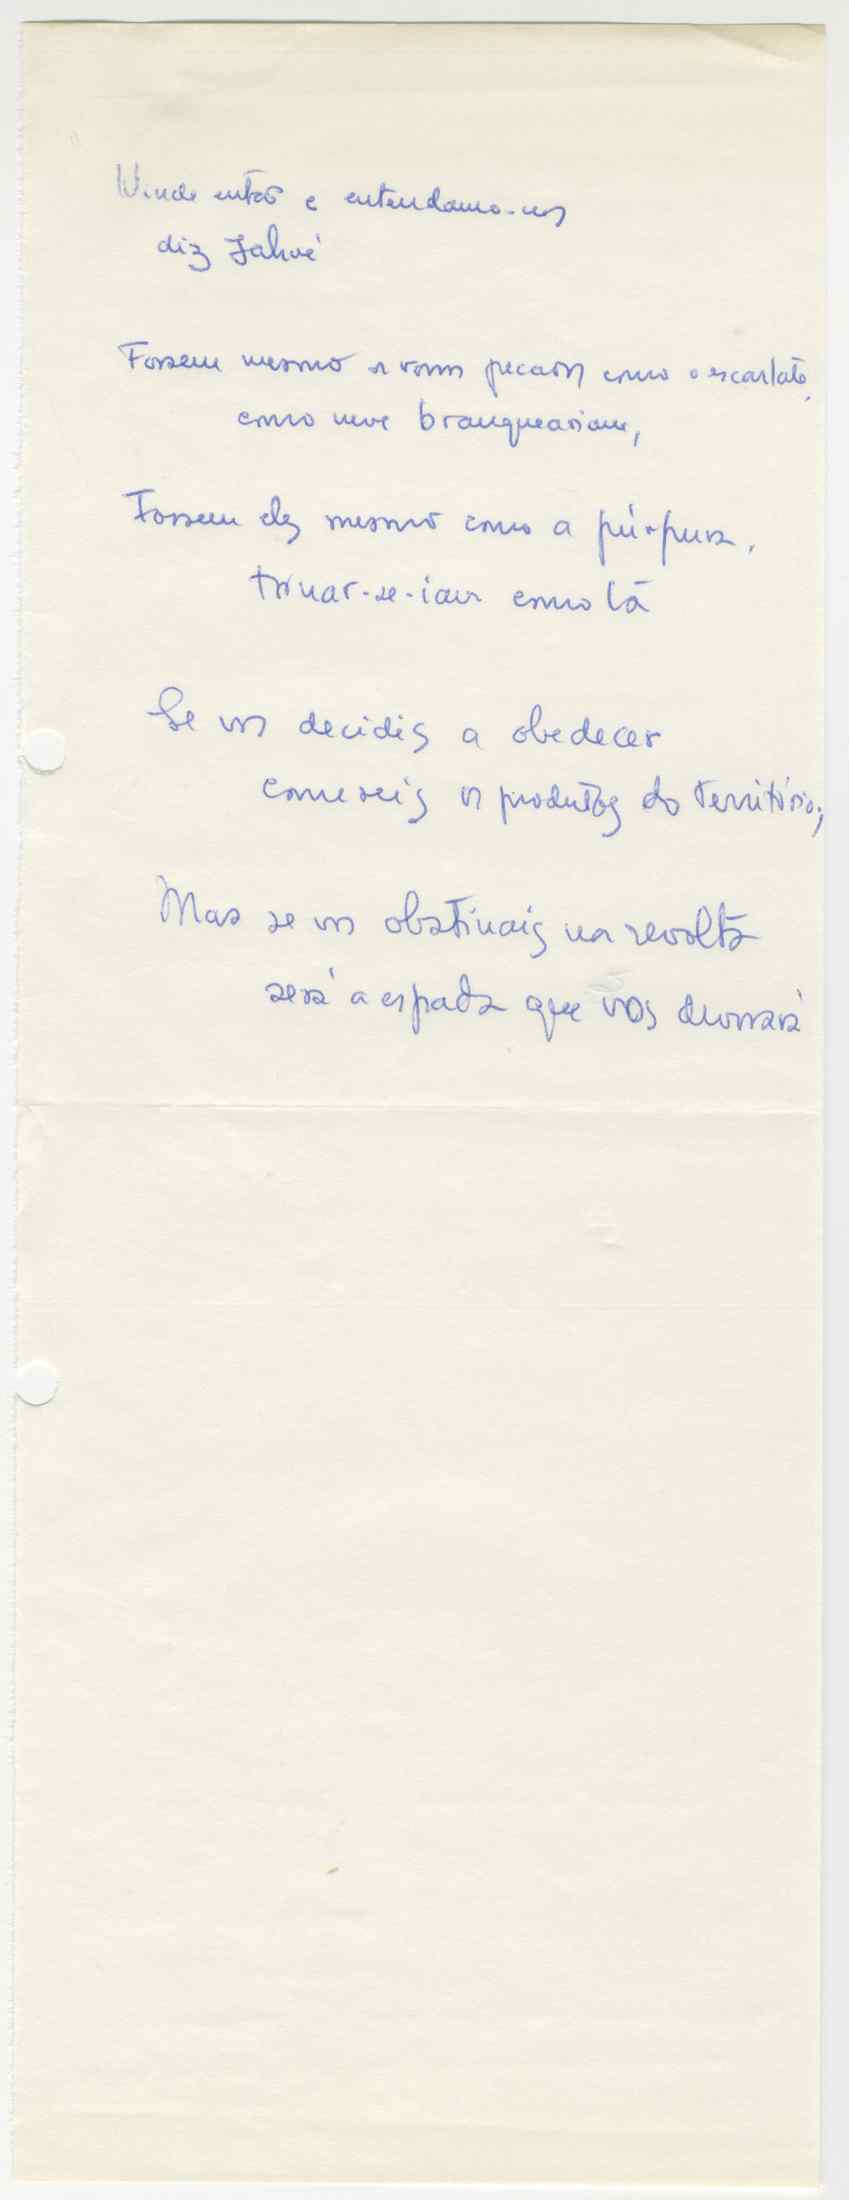 Vinde então e entendamo-nos
diz Jahvé
Fossem mesmo os vossos pecados como o escarlate,
como neve branqueariam,
Fossem eles mesmo como a púrpura,
tornar-se-iam como lã
Se vos decidis a obedecer
comereis os produtos do território;
Mas se vos obstinais na revolta
será a espada que vos devorará